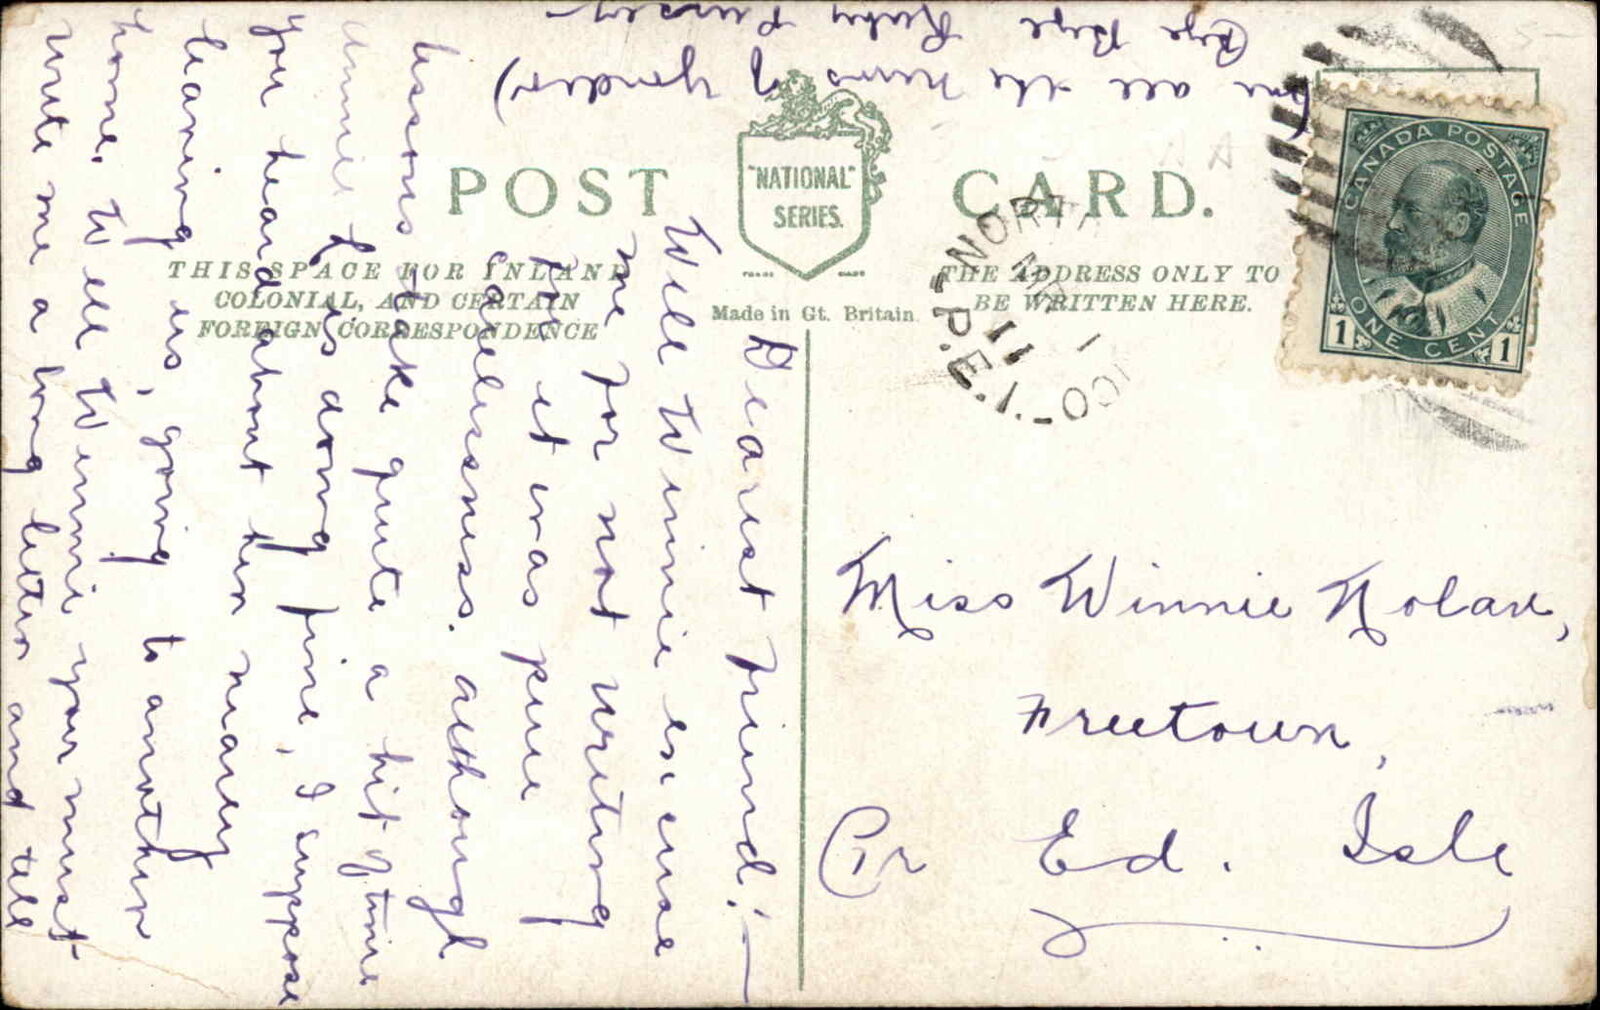 POST CARD.
"NATIONAL"
SERIES.
TRADE MARK
THIS SPACE FOR INLAND
COLONIAL, AND CERTAIN
FOREIGN CORRESPONDENCE
Made in Gt. Britain
THE ADDRESS ONLY TO
BE WRITTEN HERE.
CANADA POSTAGE
ONE CENT
1 1
NORTH
11
P.E.I.
Miss Winnie Nolan,
Freetown,
Pr Ed. Isle
Dearest Friend:—
Well Winnie excuse
me for not writing
but it was pure
carelessness. although
lessons take quite a bit of time
Annie L is doing fine, I suppose
you heard about her nearly
leaving us, going to another
home. Well Winnie you must
write me a long letter and tell
me all the news of yonder)
Bye Bye Ruby Pursey